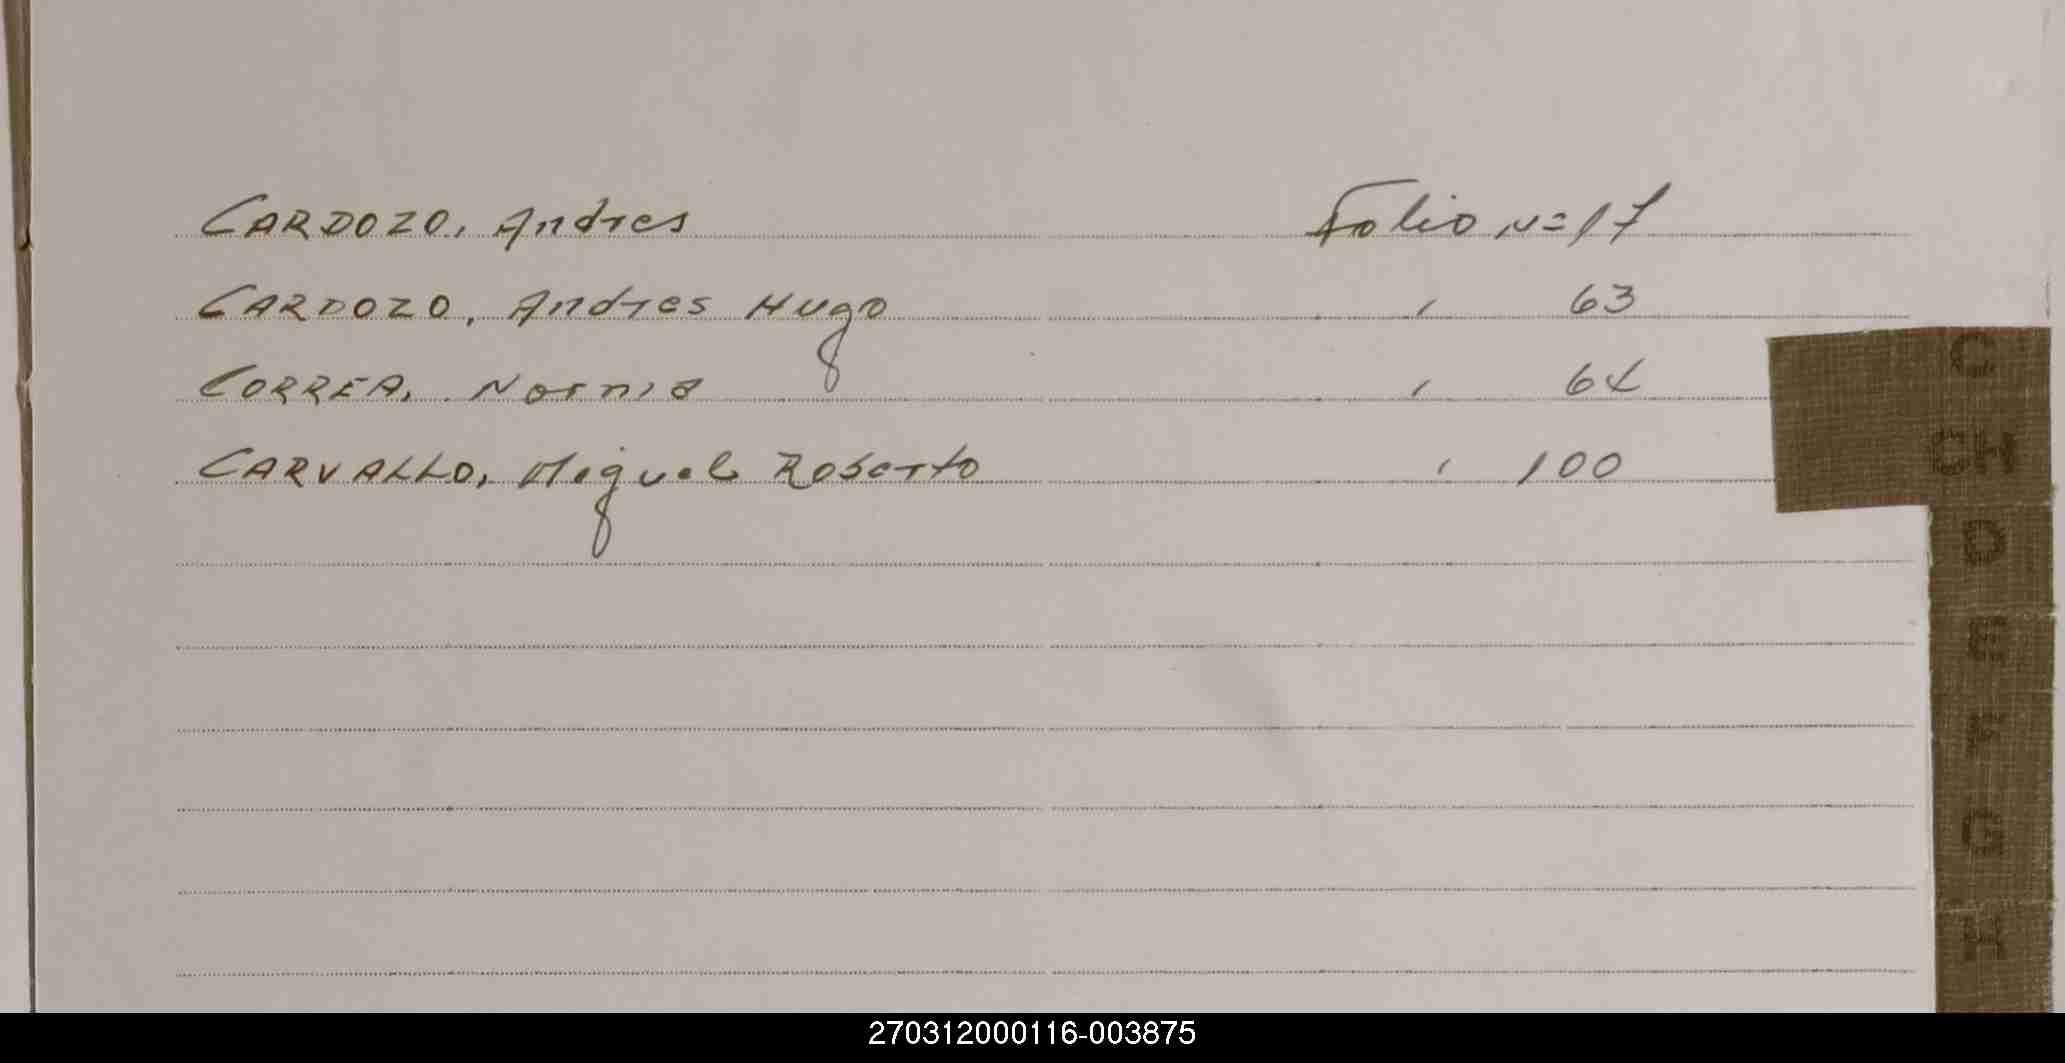 CARDOZO, Andres Folio N=17
CARDOZO, Andres Hugo , 63
CORREA, Norma , 64
CARVALLO, Miguel Roberto , 100
C
CH
D
E
F
G
H
270312000116-003875